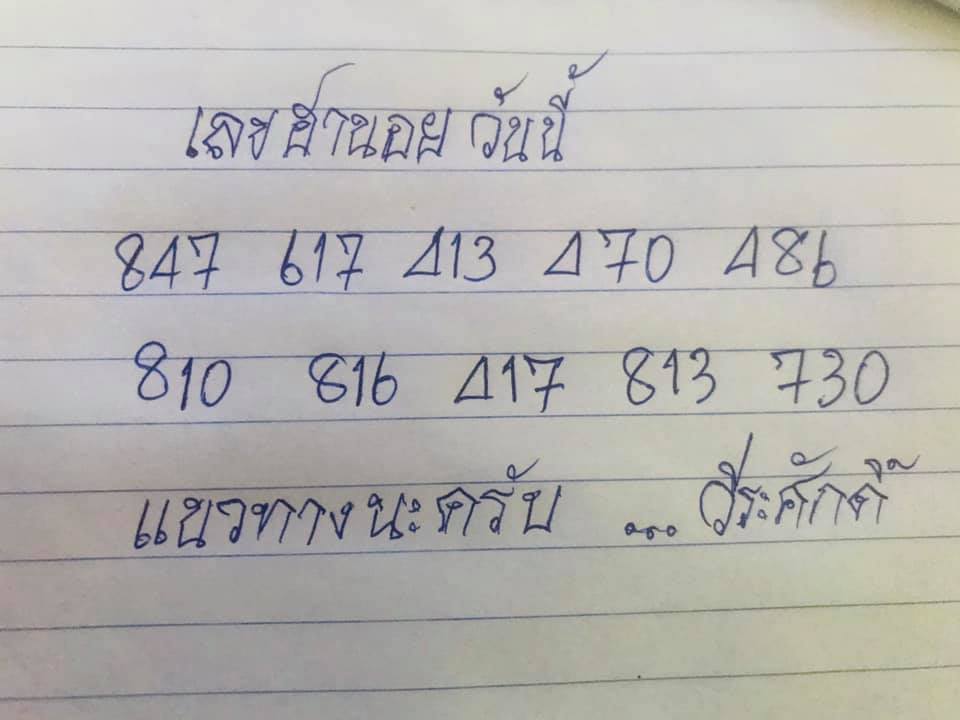 เลขฮานอย วันนี้
847 617 413 470 486
810 816 417 813 730
แนวทางนะครับ ... วีระศักดิ์